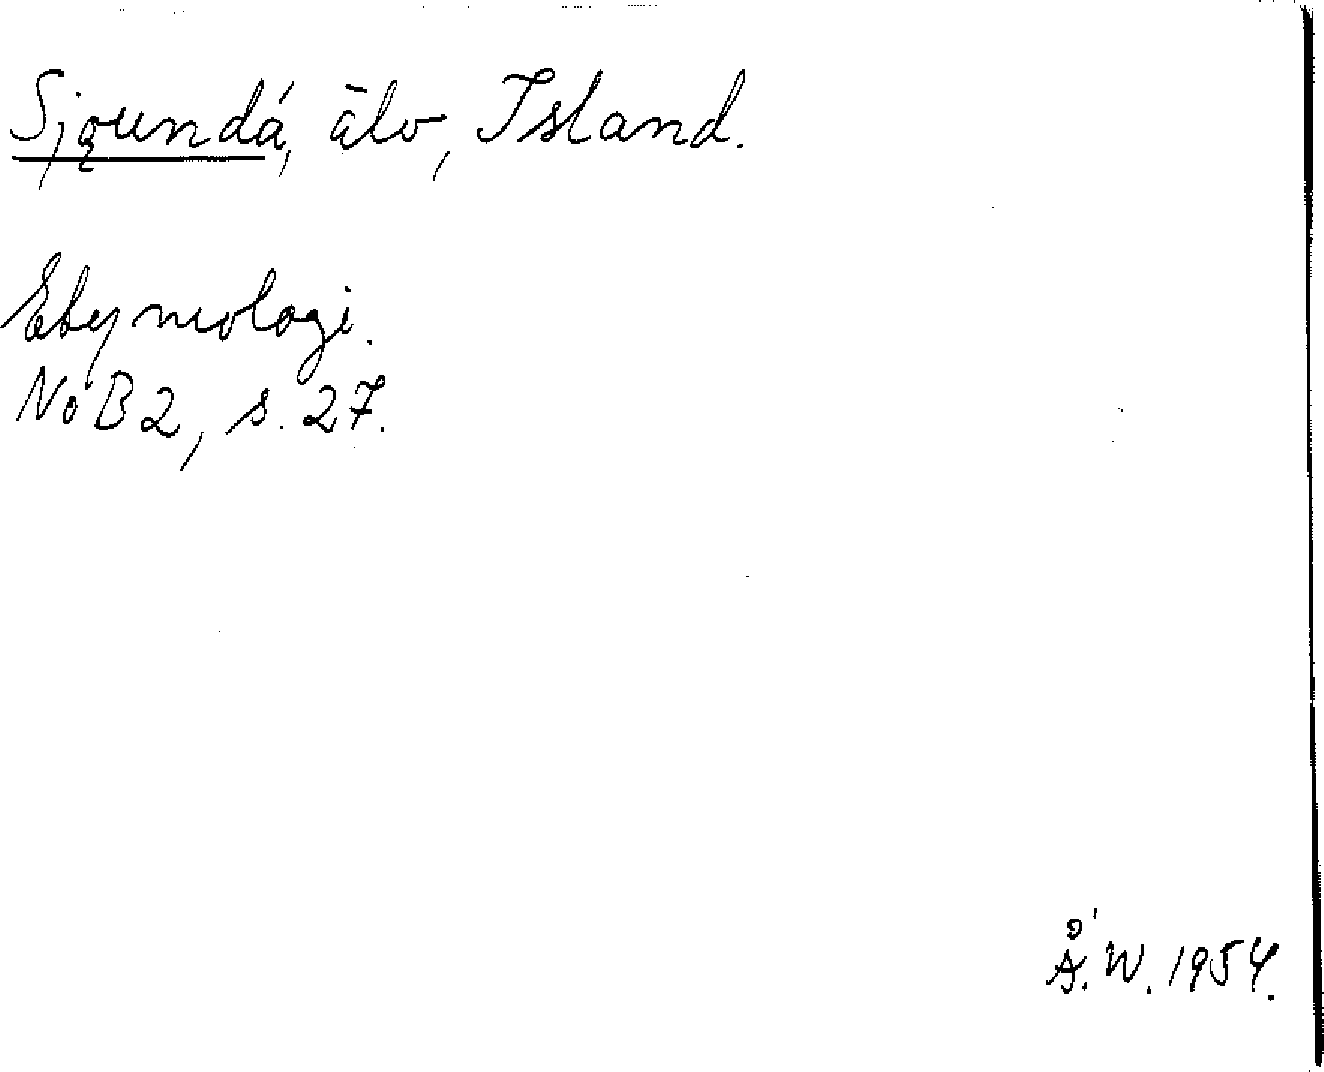 Sjǫundá, älv, Island.
Etymologi.
NoB 2, s. 27.
Å. W. 1954.